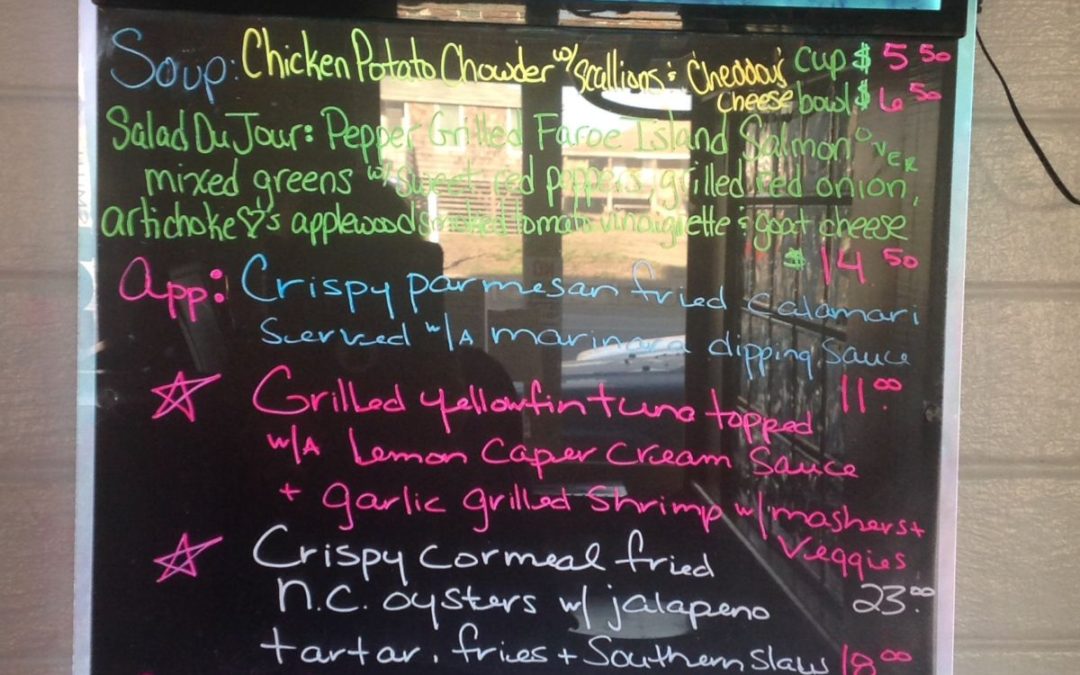 Soup: Chicken Potato Chowder w/ Scallions & Cheddar cup $ 5 50
cheese bowl $ 6 50
Salad Du Jour: Pepper Grilled Faroe Island Salmon OVER
mixed greens w/ sweet red peppers, grilled red onion,
artichoke ♡'s applewood smoked tomato vinaigrette & goat cheese
$ 14 50
App: Crispy parmesan fried calamari
served w/A marinara dipping sauce
11.00
☆ Grilled yellowfin tuna topped
w/A Lemon Caper Cream Sauce
+ garlic grilled Shrimp w/ mashers +
Veggies
☆ Crispy cormeal fried
23.00
n.c. oysters w/ jalapeno
tartar, fries + Southern Slaw 18.00